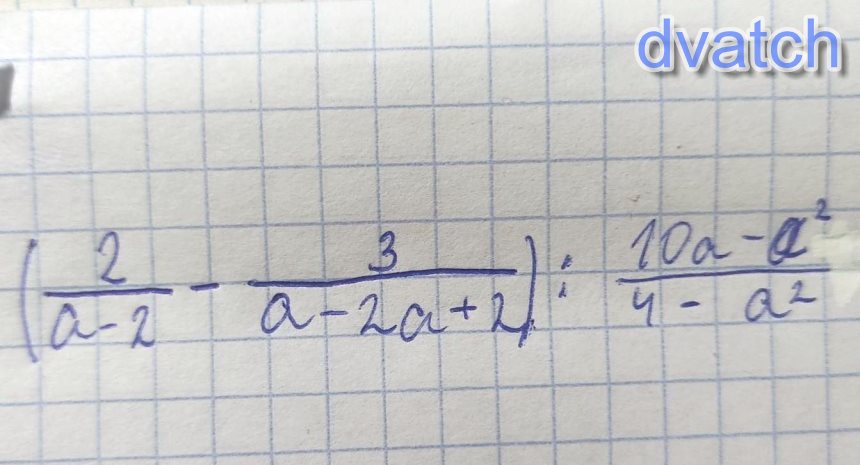 dvatch
(2/(a-2) - 3/(a-2a+2)) : (10a-a²)/(4-a²)